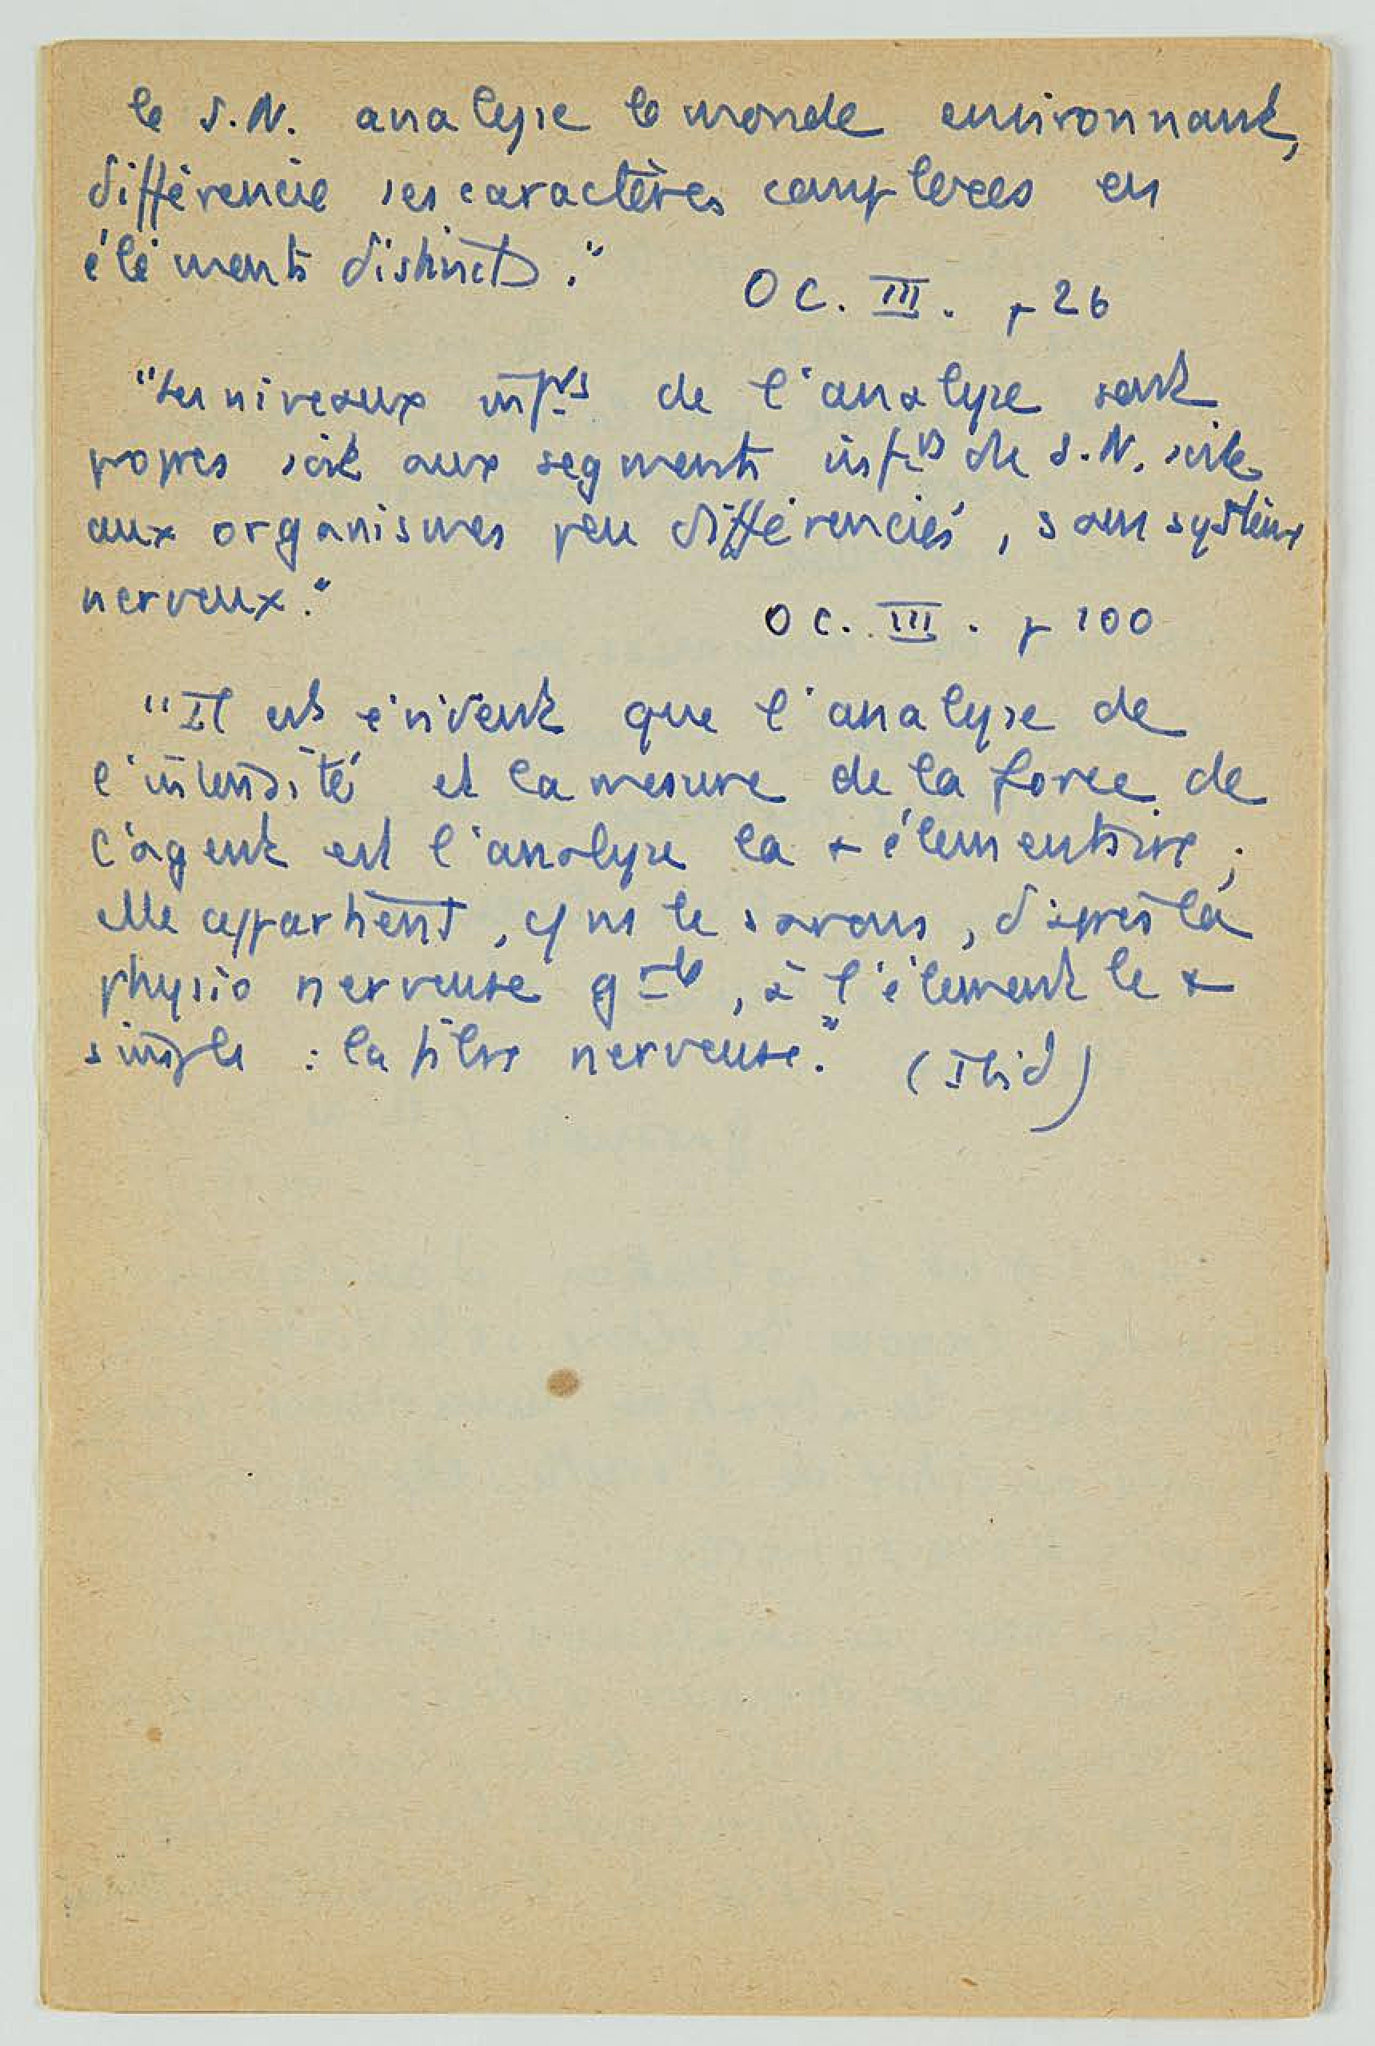 le S.N. analyse le monde environnant,
différencie ses caractères complexes en
éléments distincts."
OC. III. p 26
"Les niveaux infrs de l'analyse sont
propres soit aux segments infrs du S.N. soit
aux organismes peu différenciés, sans système
nerveux."
OC. III. p 100
"Il est évident que l'analyse de
l'intensité et la mesure de la force de
l'agent est l'analyse la + élémentaire;
elle appartient, ns le savons, d'après la
physio nerveuse gale, à l'élément le +
simple : la fibre nerveuse."
(Ibid)